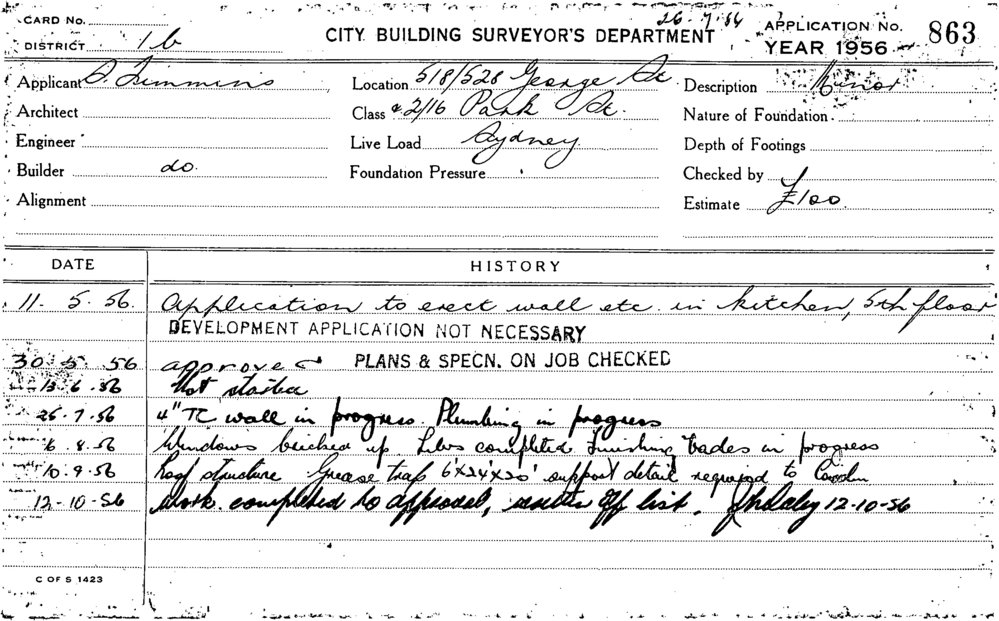 26.7.56
CARD No.
DISTRICT 1b
CITY BUILDING SURVEYOR'S DEPARTMENT
APPLICATION No. 863
YEAR 1956
Applicant Timmins
Location 518/528 George St.
Description Minor
Architect
Class & 2/16 Park St.
Nature of Foundation
Engineer
Live Load Sydney
Depth of Footings
Builder do.
Foundation Pressure
Checked by
Alignment
Estimate £100.
DATE HISTORY
11. 5. 56. Application to erect wall etc. in kitchen, 5th floor
DEVELOPMENT APPLICATION NOT NECESSARY
30. 5. 56 approved PLANS & SPECN. ON JOB CHECKED
13. 6. 56 Not started
25. 7. 56 4" TC wall in progress. Plumbing in progress
6. 8. 56 Windows bricked up completed Finishing trades in progress
10. 9. 56 Roof structure Grease trap support detail required to
12-10-56 Work completed to approval, off list. 12-10-56
C OF S 1423